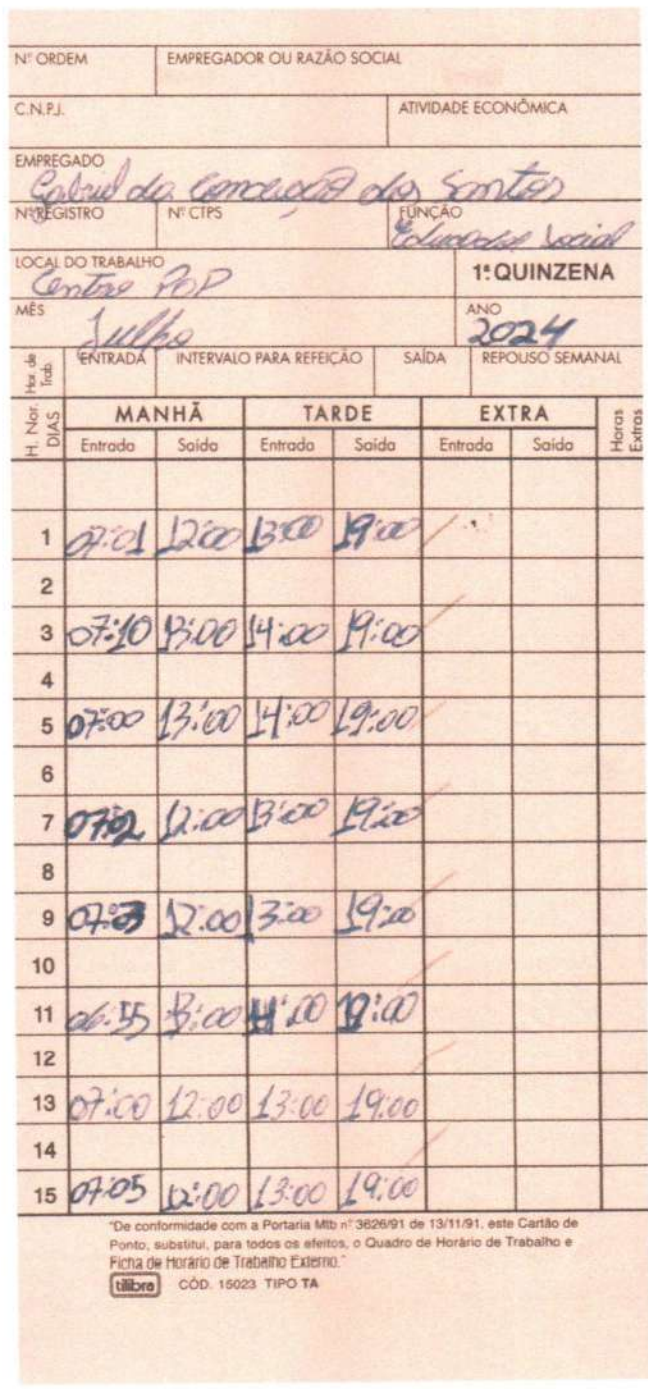 Nº ORDEM EMPREGADOR OU RAZÃO SOCIAL
C.N.P.J. ATIVIDADE ECONÔMICA
EMPREGADO
Gabriel da Conceição dos Santos
Nº REGISTRO Nº CTPS FUNÇÃO
Educador Social
LOCAL DO TRABALHO 1ª QUINZENA
Centro POP
MÊS ANO
Julho 2024
Hor. de Trab. ENTRADA INTERVALO PARA REFEIÇÃO SAÍDA REPOUSO SEMANAL
H. Nor. DIAS MANHÃ TARDE EXTRA Horas Extras
Entrada Saída Entrada Saída Entrada Saída
1 07:01 12:00 13:00 19:00
2
3 07:10 13:00 14:00 19:00
4
5 07:00 13:00 14:00 19:00
6
7 07:02 12:00 13:00 19:00
8
9 07:03 12:00 13:00 19:00
10
11 06:55 13:00 14:00 19:00
12
13 07:00 12:00 13:00 19:00
14
15 07:05 12:00 13:00 19:00
"De conformidade com a Portaria Mtb nº 3626/91 de 13/11/91, este Cartão de
Ponto, substitui, para todos os efeitos, o Quadro de Horário de Trabalho e
Ficha de Horário de Trabalho Externo."
tilibra CÓD. 15023 TIPO TA